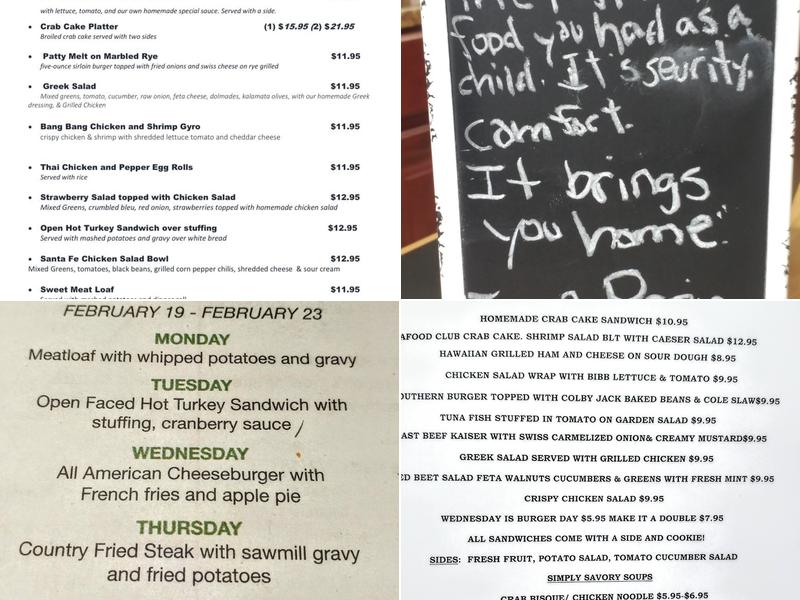 with lettuce, tomato, and our own homemade special sauce. Served with a side.
• Crab Cake Platter (1) $15.95 (2) $21.95
Broiled crab cake served with two sides
• Patty Melt on Marbled Rye $11.95
five-ounce sirloin burger topped with fried onions and swiss cheese on rye grilled
• Greek Salad $11.95
Mixed greens, tomato, cucumber, raw onion, feta cheese, dolmades, kalamata olives, with our homemade Greek
dressing, & Grilled Chicken
• Bang Bang Chicken and Shrimp Gyro $11.95
crispy chicken & shrimp with shredded lettuce tomato and cheddar cheese
• Thai Chicken and Pepper Egg Rolls $11.95
Served with rice
• Strawberry Salad topped with Chicken Salad $12.95
Mixed Greens, crumbled bleu, red onion, strawberries topped with homemade chicken salad
• Open Hot Turkey Sandwich over stuffing $12.95
Served with mashed potatoes and gravy over white bread
• Santa Fe Chicken Salad Bowl $12.95
Mixed Greens, tomatoes, black beans, grilled corn pepper chilis, shredded cheese & sour cream
• Sweet Meat Loaf $11.95
food you had as a
child. It's seurity.
Comfort.
It brings
you home."
FEBRUARY 19 - FEBRUARY 23
MONDAY
Meatloaf with whipped potatoes and gravy
TUESDAY
Open Faced Hot Turkey Sandwich with
stuffing, cranberry sauce /
WEDNESDAY
All American Cheeseburger with
French fries and apple pie
THURSDAY
Country Fried Steak with sawmill gravy
and fried potatoes
HOMEMADE CRAB CAKE SANDWICH $10.95
AFOOD CLUB CRAB CAKE. SHRIMP SALAD BLT WITH CAESER SALAD $12.95
HAWAIIAN GRILLED HAM AND CHEESE ON SOUR DOUGH $8.95
CHICKEN SALAD WRAP WITH BIBB LETTUCE & TOMATO $9.95
OUTHERN BURGER TOPPED WITH COLBY JACK BAKED BEANS & COLE SLAW$9.95
TUNA FISH STUFFED IN TOMATO ON GARDEN SALAD $9.95
AST BEEF KAISER WITH SWISS CARMELIZED ONION& CREAMY MUSTARD$9.95
GREEK SALAD SERVED WITH GRILLED CHICKEN $9.95
ED BEET SALAD FETA WALNUTS CUCUMBERS & GREENS WITH FRESH MINT $9.95
CRISPY CHICKEN SALAD $9.95
WEDNESDAY IS BURGER DAY $5.95 MAKE IT A DOUBLE $7.95
ALL SANDWICHES COME WITH A SIDE AND COOKIE!
SIDES: FRESH FRUIT, POTATO SALAD, TOMATO CUCUMBER SALAD
SIMPLY SAVORY SOUPS
CRAB BISQUE/ CHICKEN NOODLE $5.95-$6.95